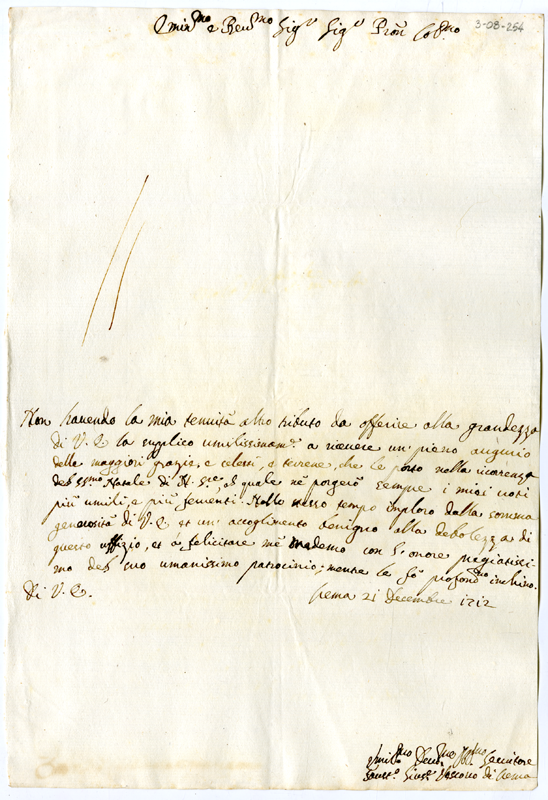 3-08-254
Emin.mo e Rev.mo Sig.r Sig.r Pron Col.mo
Non havendo la mia tenuità altro tributo da offerire alla grandezza
di V. E. la supplico umilissimam.te a riceuere un pieno augurio
delle maggiori grazie, e celesti, e terrene, che le porto nella ricorenza
del SSmo Natale di N. Sre, al quale ne porgerò sempre i miei voti
più umili, e più feruenti. Nello stesso tempo imploro dalla somma
generosità di V. E. et un accoglimento benigno alla debolezza di
questo uffizio, et à felicitare mè medemo con l'onore pregiatissi-
mo del suo umanissimo patrocinio; mentre le fò profond.mo inchino.
Di V. E.
Crema 21 Decembre 1712
Umil.mo Deu.mo Obl.mo Seruitore
Faust.o Gius.e Vescouo di Crema